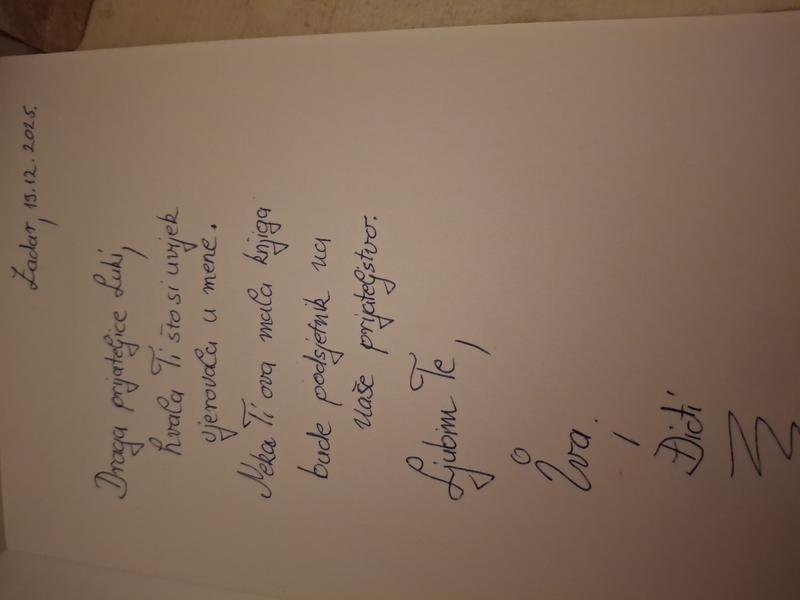 Zadar, 19.12.2025.
Draga prijateljice Luki,
hvala Ti što si uvijek
vjerovala u mene.
Neka Ti ova mala knjiga
bude podsjetnik na
naše prijateljstvo.
Ljubim Te,
Iva.
Đidi